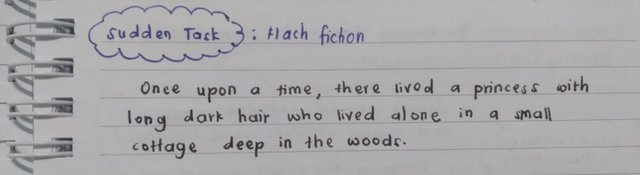 Sudden Task : Flach fiction
Once upon a time, there lived a princess with
long dark hair who lived alone in a small
cottage deep in the woods.